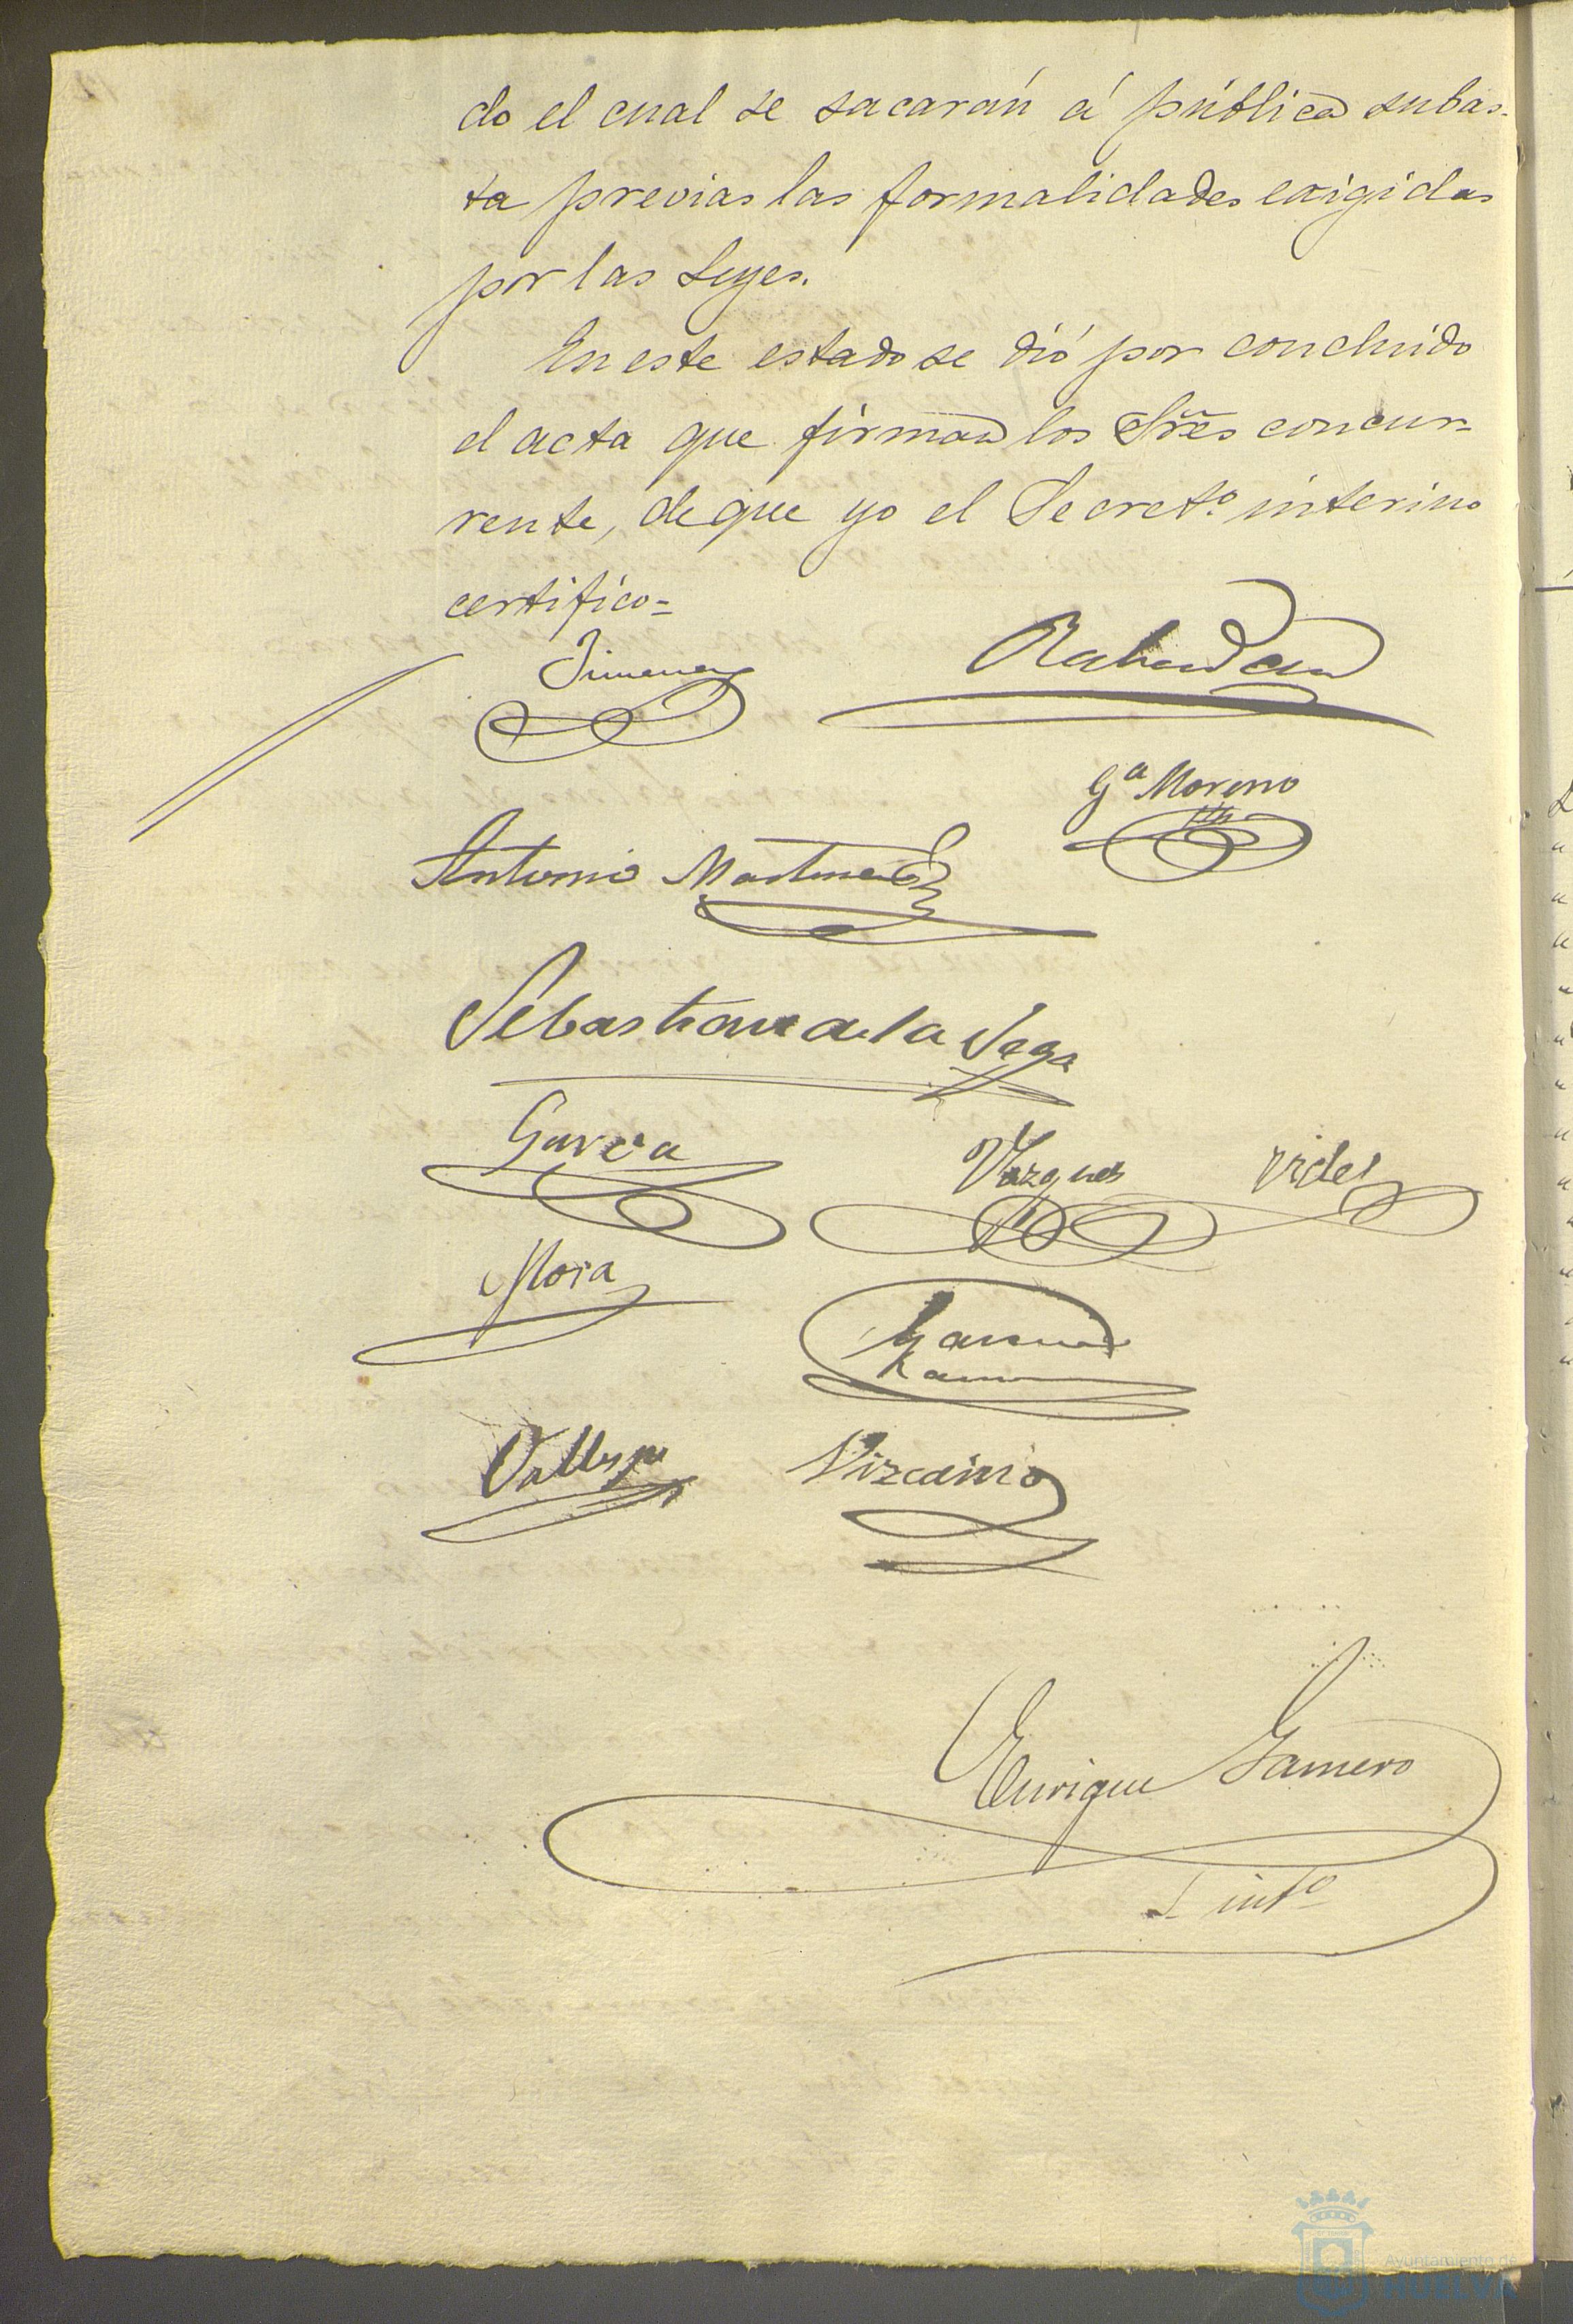 do el cual se sacarán á pública subas-
ta previas las formalidades exigidas
por las Leyes.
En este estado se dió por concluido
el acta que firman los Sres concur-
rente, de que yo el Secret.º interino
certifico=
Jimenez
Gª Moreno
Antonio Martinez
Sebastian de la Vega
García
Vazquez Videl
Mora
Vizcaino
Enrique Gamero
S. intº
Ayuntamiento de
HUELVA